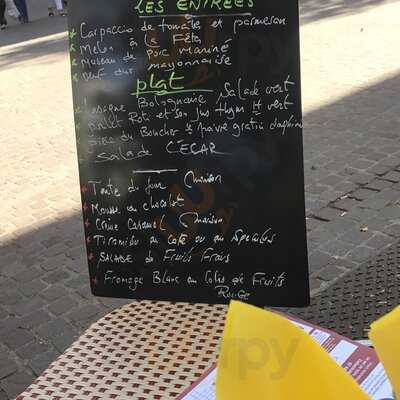 LES ENTREES
Carpaccio de tomate et parmesan
Melon à la Féta
Museau de porc mariné
oeuf dur mayonnaise
plat
Lasagne Bolognaise Salade vert
poulet Roti et son jus thym Ht vert
pièce du Boucher s/poivre gratin dauphin
Salade CECAR
Tarte du Jour Maison
Mousse au chocolat
Crème Caramel Maison
Tiramisu au café ou au Speculos
SALADE de Fruits Frais
Fromage Blanc au Colis de Fruits
Rouge